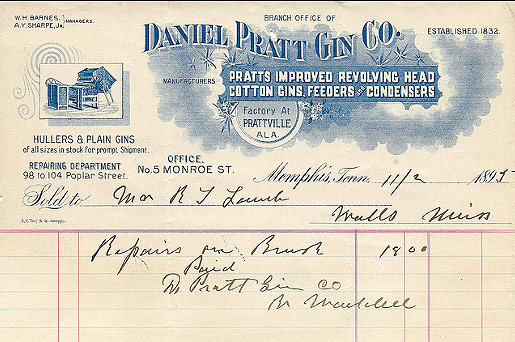 W.H. BARNES,
A.Y. SHARPE, Jr.
MANAGERS.
BRANCH OFFICE OF
ESTABLISHED 1832.
DANIEL PRATT GIN CO.
MANUFACTURERS
PRATTS IMPROVED REVOLVING HEAD
COTTON GINS, FEEDERS AND CONDENSERS
Factory At
PRATTVILLE
ALA.
HULLERS & PLAIN GINS
of all sizes in stock for prompt Shipment.
REPAIRING DEPARTMENT
98 to 104 Poplar Street.
OFFICE,
No. 5 MONROE ST.
Memphis, Tenn. 11/2 1895
Sold to R T Lamb
Walls Miss
Repairs on Brush 18 00
Paid
D. Pratt Gin Co